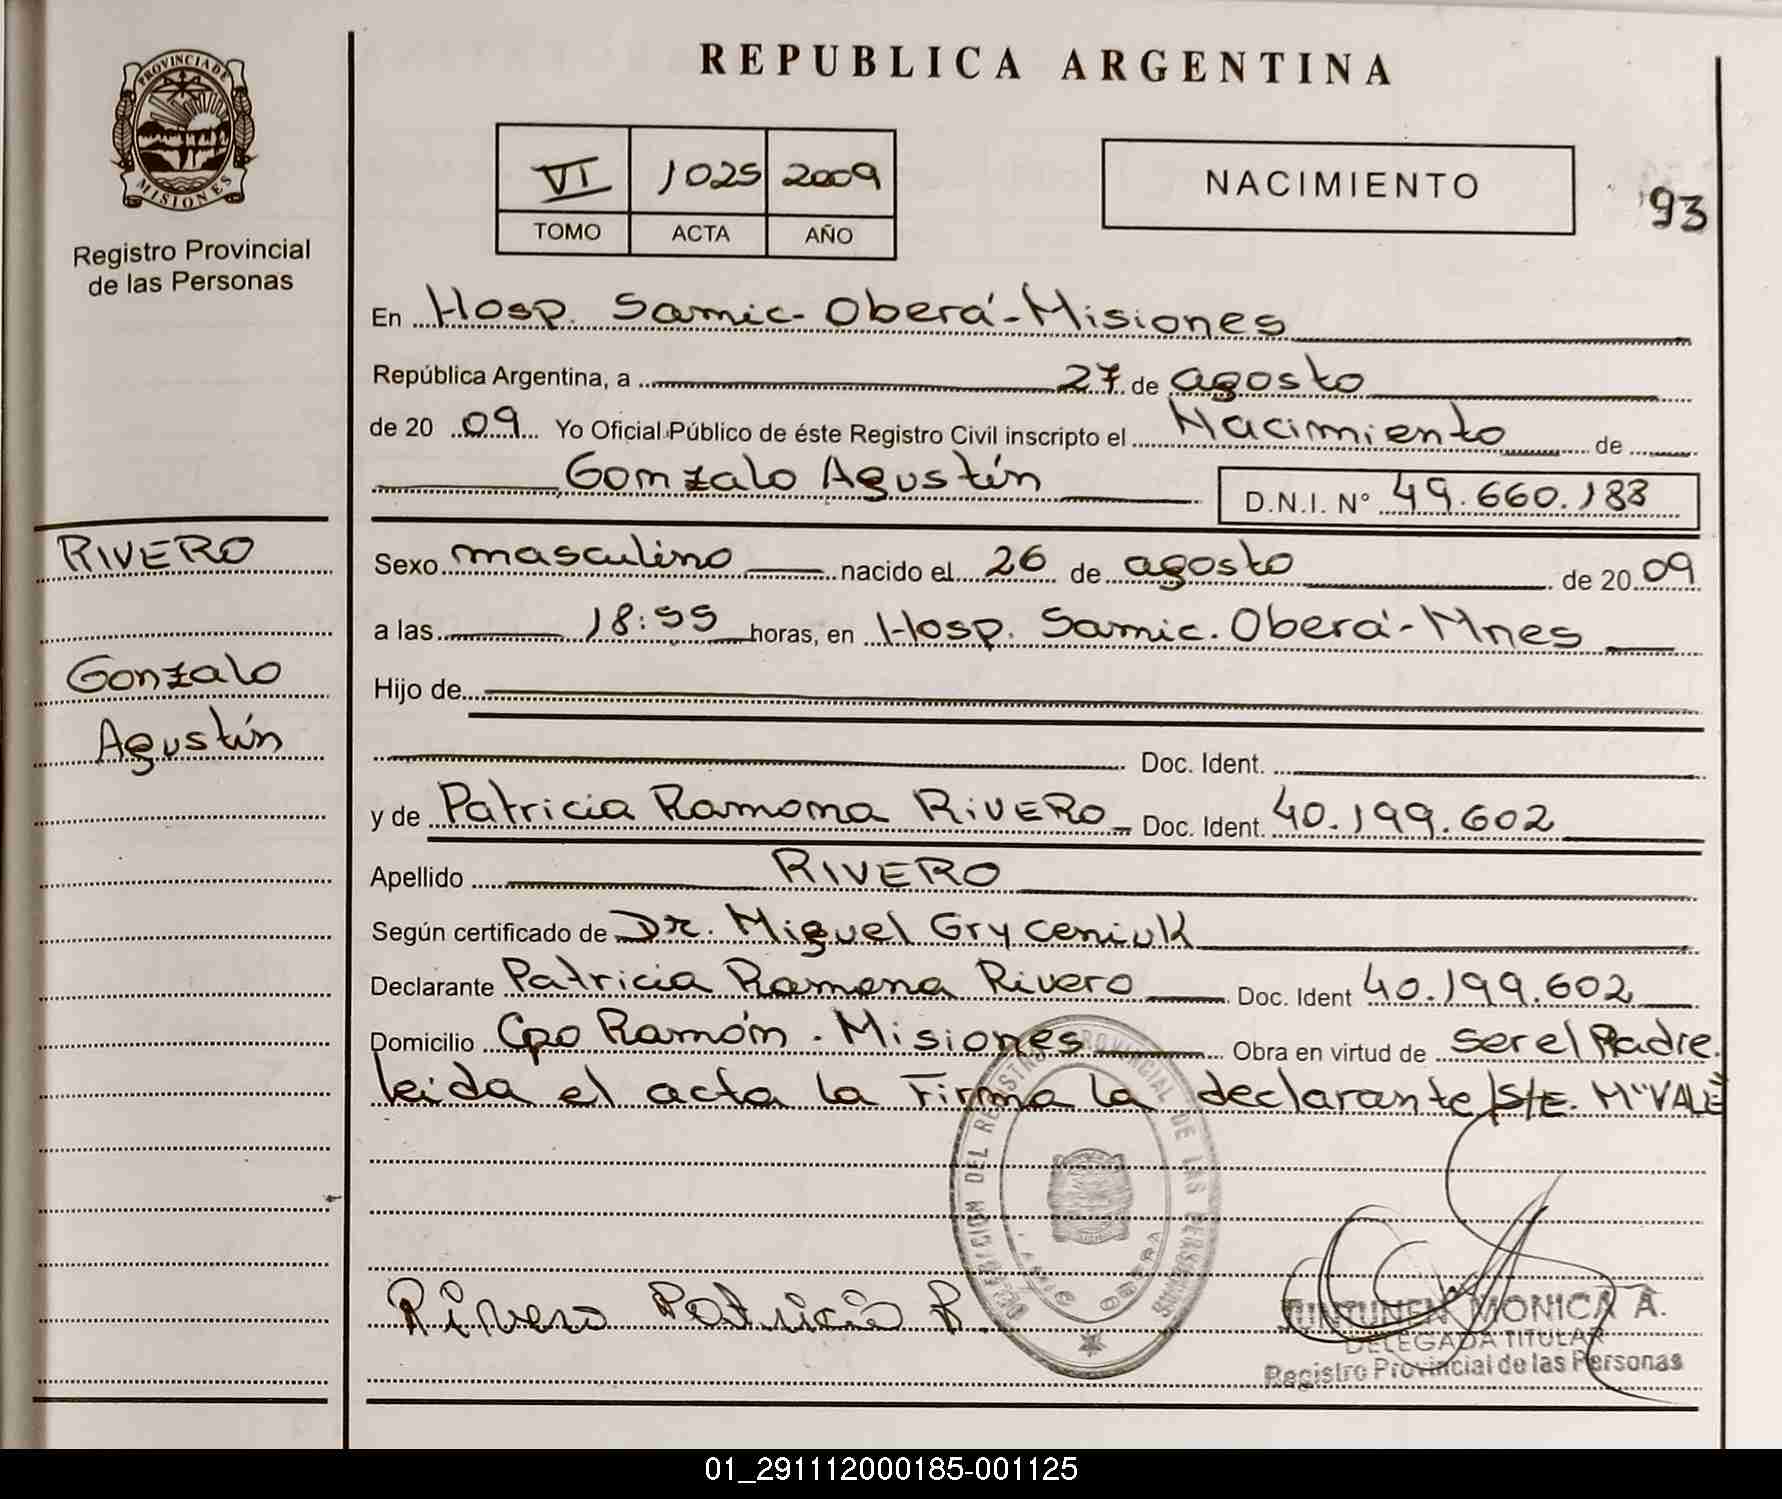 REPUBLICA ARGENTINA
PROVINCIA DE
MISIONES
Registro Provincial
de las Personas
VI 1025 2009
TOMO ACTA AÑO
NACIMIENTO
93
En Hosp. Samic - Oberá - Misiones
República Argentina, a 27 de agosto
de 2009 Yo Oficial Público de éste Registro Civil inscripto el Nacimiento de
Gonzalo Agustín D.N.I. N° 49.660.188
RIVERO
Gonzalo
Agustín
Sexo masculino nacido el 26 de agosto de 2009
a las 18:55 horas, en Hosp. Samic. Oberá - Mnes
Hijo de
Doc. Ident.
y de Patricia Ramona RIVERO Doc. Ident. 40.199.602
Apellido RIVERO
Según certificado de Dr. Miguel Gryceniuk
Declarante Patricia Ramona Rivero Doc. Ident 40.199.602
Domicilio Cpo Ramón. Misiones Obra en virtud de ser el Padre.
leida el acta la Firma la declarante / S/E. M" VALE
DEL REGISTRO PROVINCIAL DE LAS PERSONAS
OBERA
Rivero Patricia R.
MONICA A.
DELEGADA TITULAR
Registro Provincial de las Personas
01_291112000185-001125